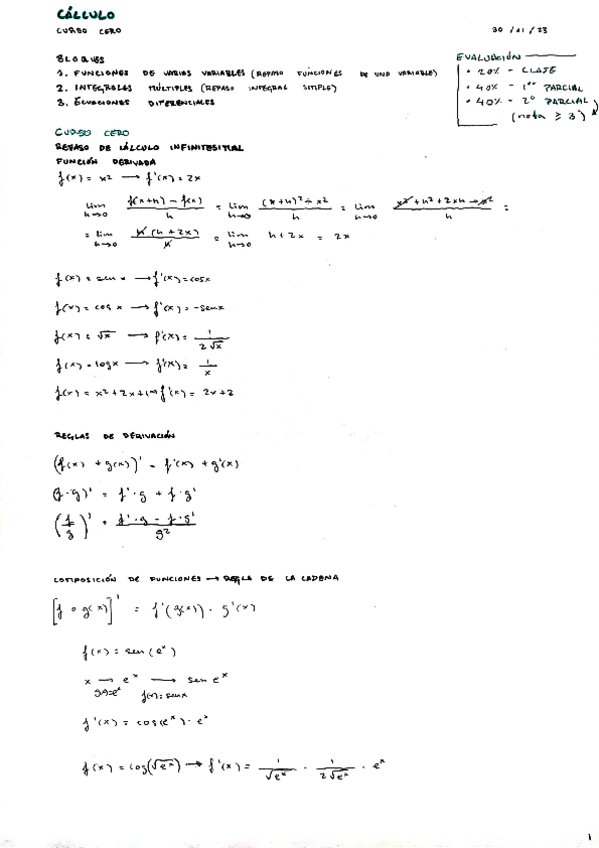 CÁLCULO
CURSO CERO
30/01/23
BLOQUES
1. FUNCIONES DE VARIAS VARIABLES (REPASO FUNCIONES DE UNA VARIABLE)
2. INTEGRALES MÚLTIPLES (REPASO INTEGRAL SIMPLE)
3. ECUACIONES DIFERENCIALES
EVALUACIÓN
• 20% - CLASE
• 40% - 1er PARCIAL
• 40% - 2º PARCIAL
(nota ≥ 3)
CURSO CERO
REPASO DE CÁLCULO INFINITESIMAL
FUNCIÓN DERIVADA
f(x) = x² → f'(x) = 2x
lim h→0 f(x+h) - f(x) / h = lim h→0 (x+h)² - x² / h = lim h→0 x² + h² + 2xh - x² / h =
= lim h→0 h(h + 2x) / h = lim h→0 h + 2x = 2x
f(x) = sen x → f'(x) = cosx
f(x) = cos x → f'(x) = -senx
f(x) = √x → f'(x) = 1 / 2√x
f(x) = logx → f'(x) = 1 / x
f(x) = x² + 2x + 1 → f'(x) = 2x + 2
REGLAS DE DERIVACIÓN
(f(x) + g(x))' = f'(x) + g'(x)
(f · g)' = f' · g + f · g'
(f / g)' = f' · g - f · g' / g²
COMPOSICIÓN DE FUNCIONES → REGLA DE LA CADENA
[f ∘ g(x)]' = f'(g(x)) · g'(x)
f(x) = sen(eˣ)
x → eˣ → sen eˣ
g(x)=eˣ f(x)=senx
f'(x) = cos(eˣ) · eˣ
f(x) = log(√eˣ) → f'(x) = 1 / √eˣ · 1 / 2√eˣ · eˣ
1